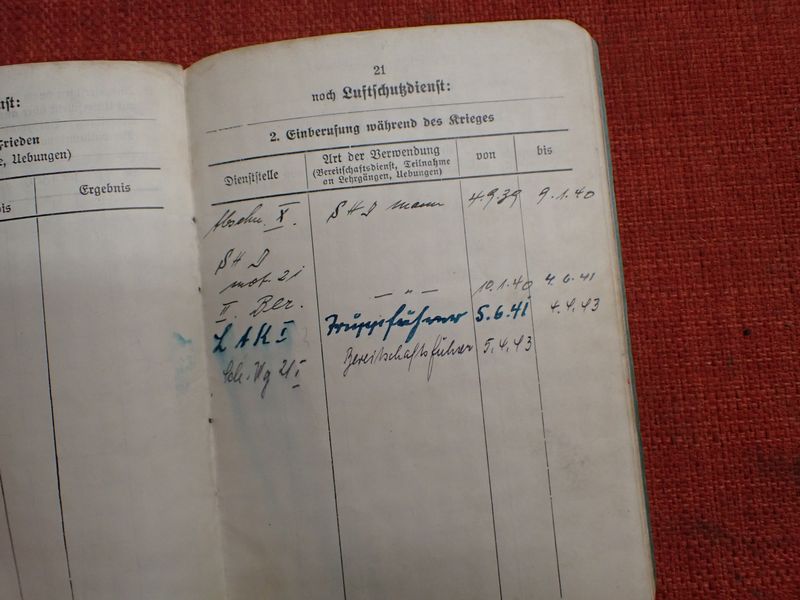 nst:
Frieden
e, Uebungen)
bis
Ergebnis
21
noch Luftschutzdienst:
2. Einberufung während des Krieges
Dienststelle
Art der Verwendung
(Bereitschaftsdienst, Teilnahme
an Lehrgängen, Uebungen)
von
bis
Abschn. X. S H D Mann 4.9.39 9.1.40
S H D
mot. 21
II. Ber. — " — 10.1.40 4.6.41
L A K I Truppführer 5.6.41 4.4.43
Bereitschaftsführer 5.4.43